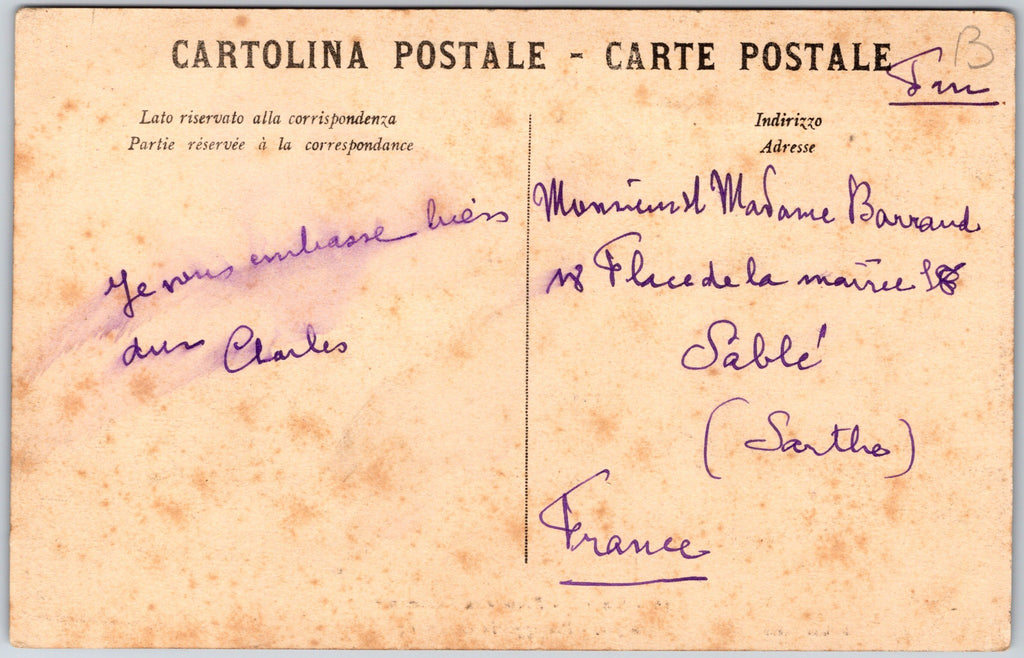 CARTOLINA POSTALE - CARTE POSTALE
B
Lato riservato alla corrispondenza
Partie réservée à la correspondance
Indirizzo
Adresse
Je vous embrasse bien
Charles
Monsieur et Madame Barraud
18 Place de la mairie 18
Sablé
(Sarthe)
France